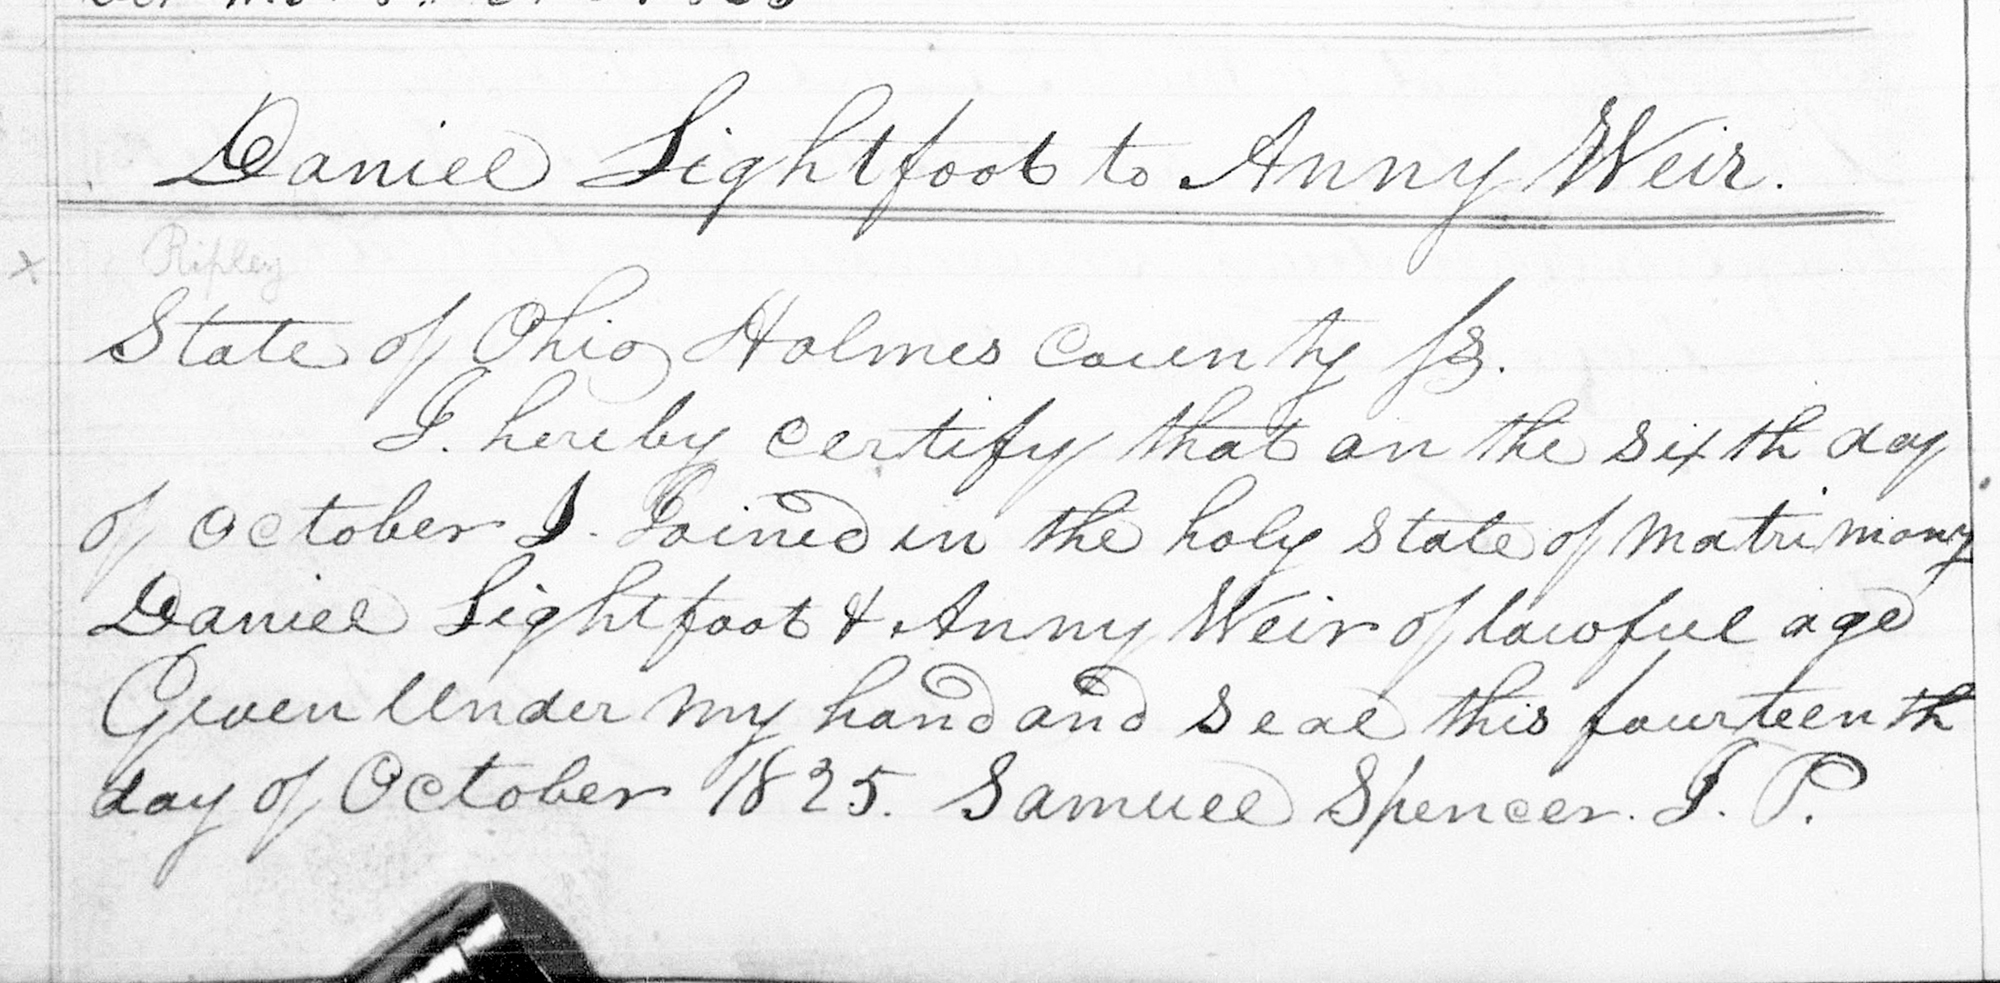 Daniel Lightfoot to Anny Weir.
x Ripley
State of Ohio Holmes County ss.
I. hereby certify that on the sixth day
of October I. Joined in the holy state of matrimony
Daniel Lightfoot & Anny Weir of lawful age
Given Under my hand and seal this fourteenth
day of October 1825. Samuel Spencer. J. P.